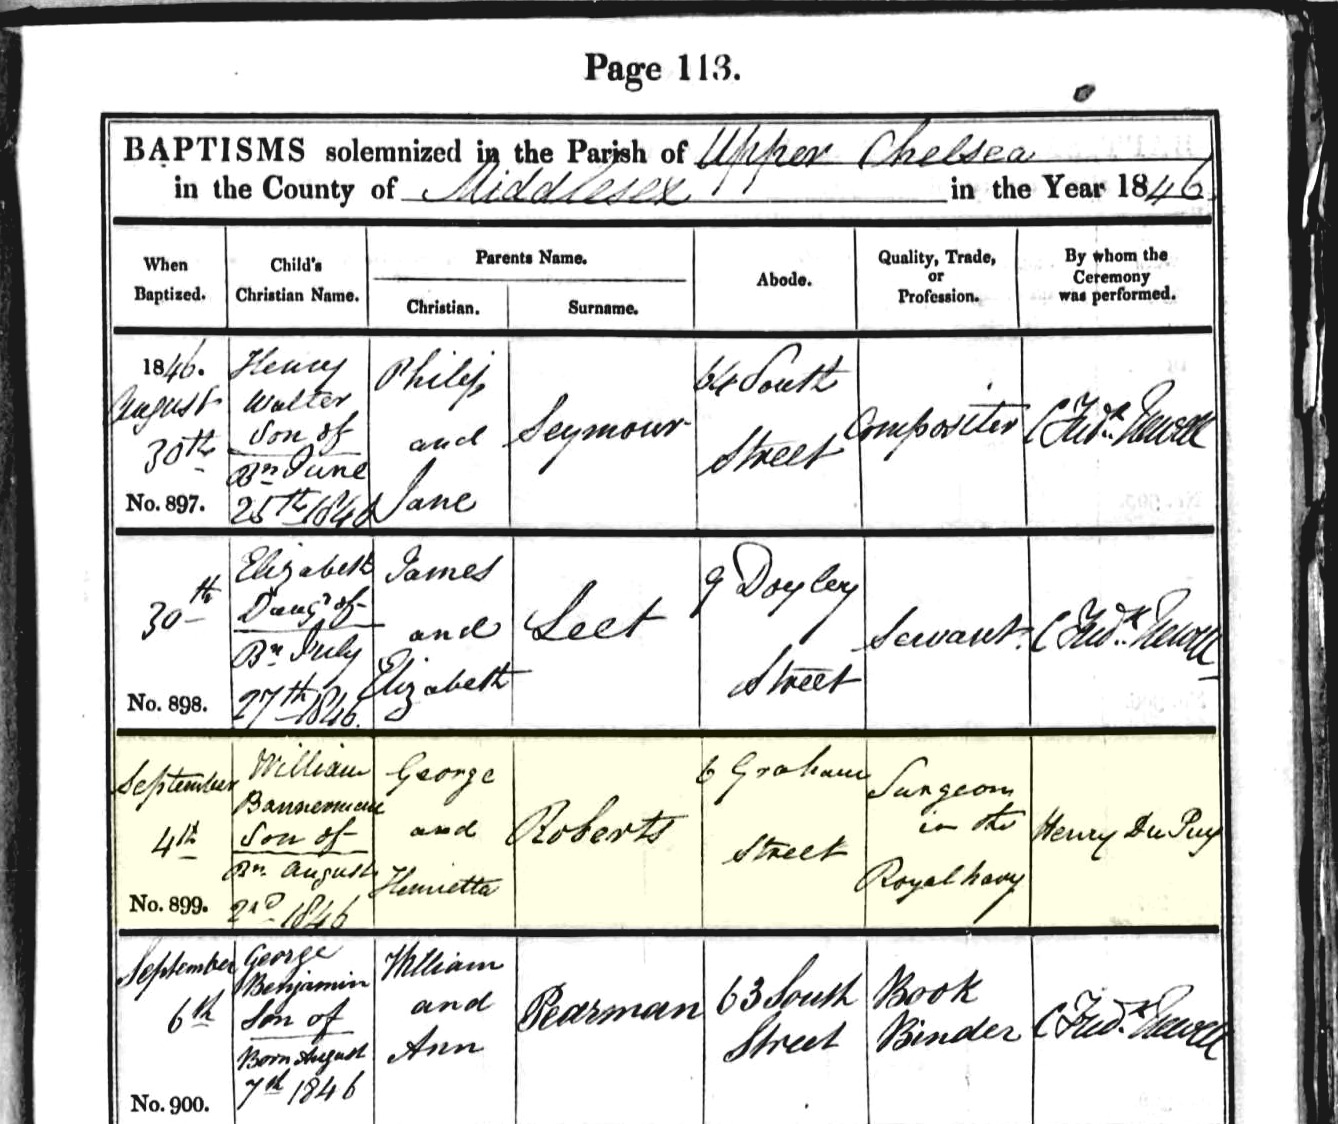 Page 113.
BAPTISMS solemnized in the Parish of Upper Chelsea
in the County of Middlesex in the Year 1846.
When Baptized.
Child's Christian Name.
Parents Name.
Christian.
Surname.
Abode.
Quality, Trade, or Profession.
By whom the Ceremony was performed.
1846.
August
30th
No. 897.
Henry
Walter
Son of
Bn June
25th 1846
Philip
and
Jane
Seymour
64 South
Street
Compositor
C Fredk Newell
30th
No. 898.
Elizabeth
Daugr of
Bn July
27th 1846.
James
and
Elizabeth
Leet
9 Doyley
Street
Servant.
C Fredk Newell
September
4th
No. 899.
William
Bannerman
Son of
Bn August
2nd 1846
George
and
Henrietta
Roberts
6 Graham
Street
Surgeon
in the
Royal Navy
Henry Du Puy
September
6th
No. 900.
George
Benjamin
Son of
Born August
7th 1846
William
and
Ann
Pearman
63 South
Street
Book
Binder
C Fredk Newell